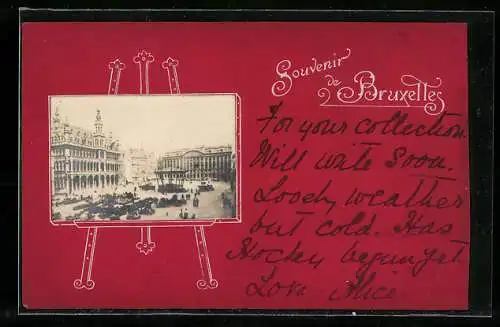 Souvenir
de
Bruxelles
For your collection.
Will write soon.
weather
but cold. Has
Hockey begun yet
Love Alice